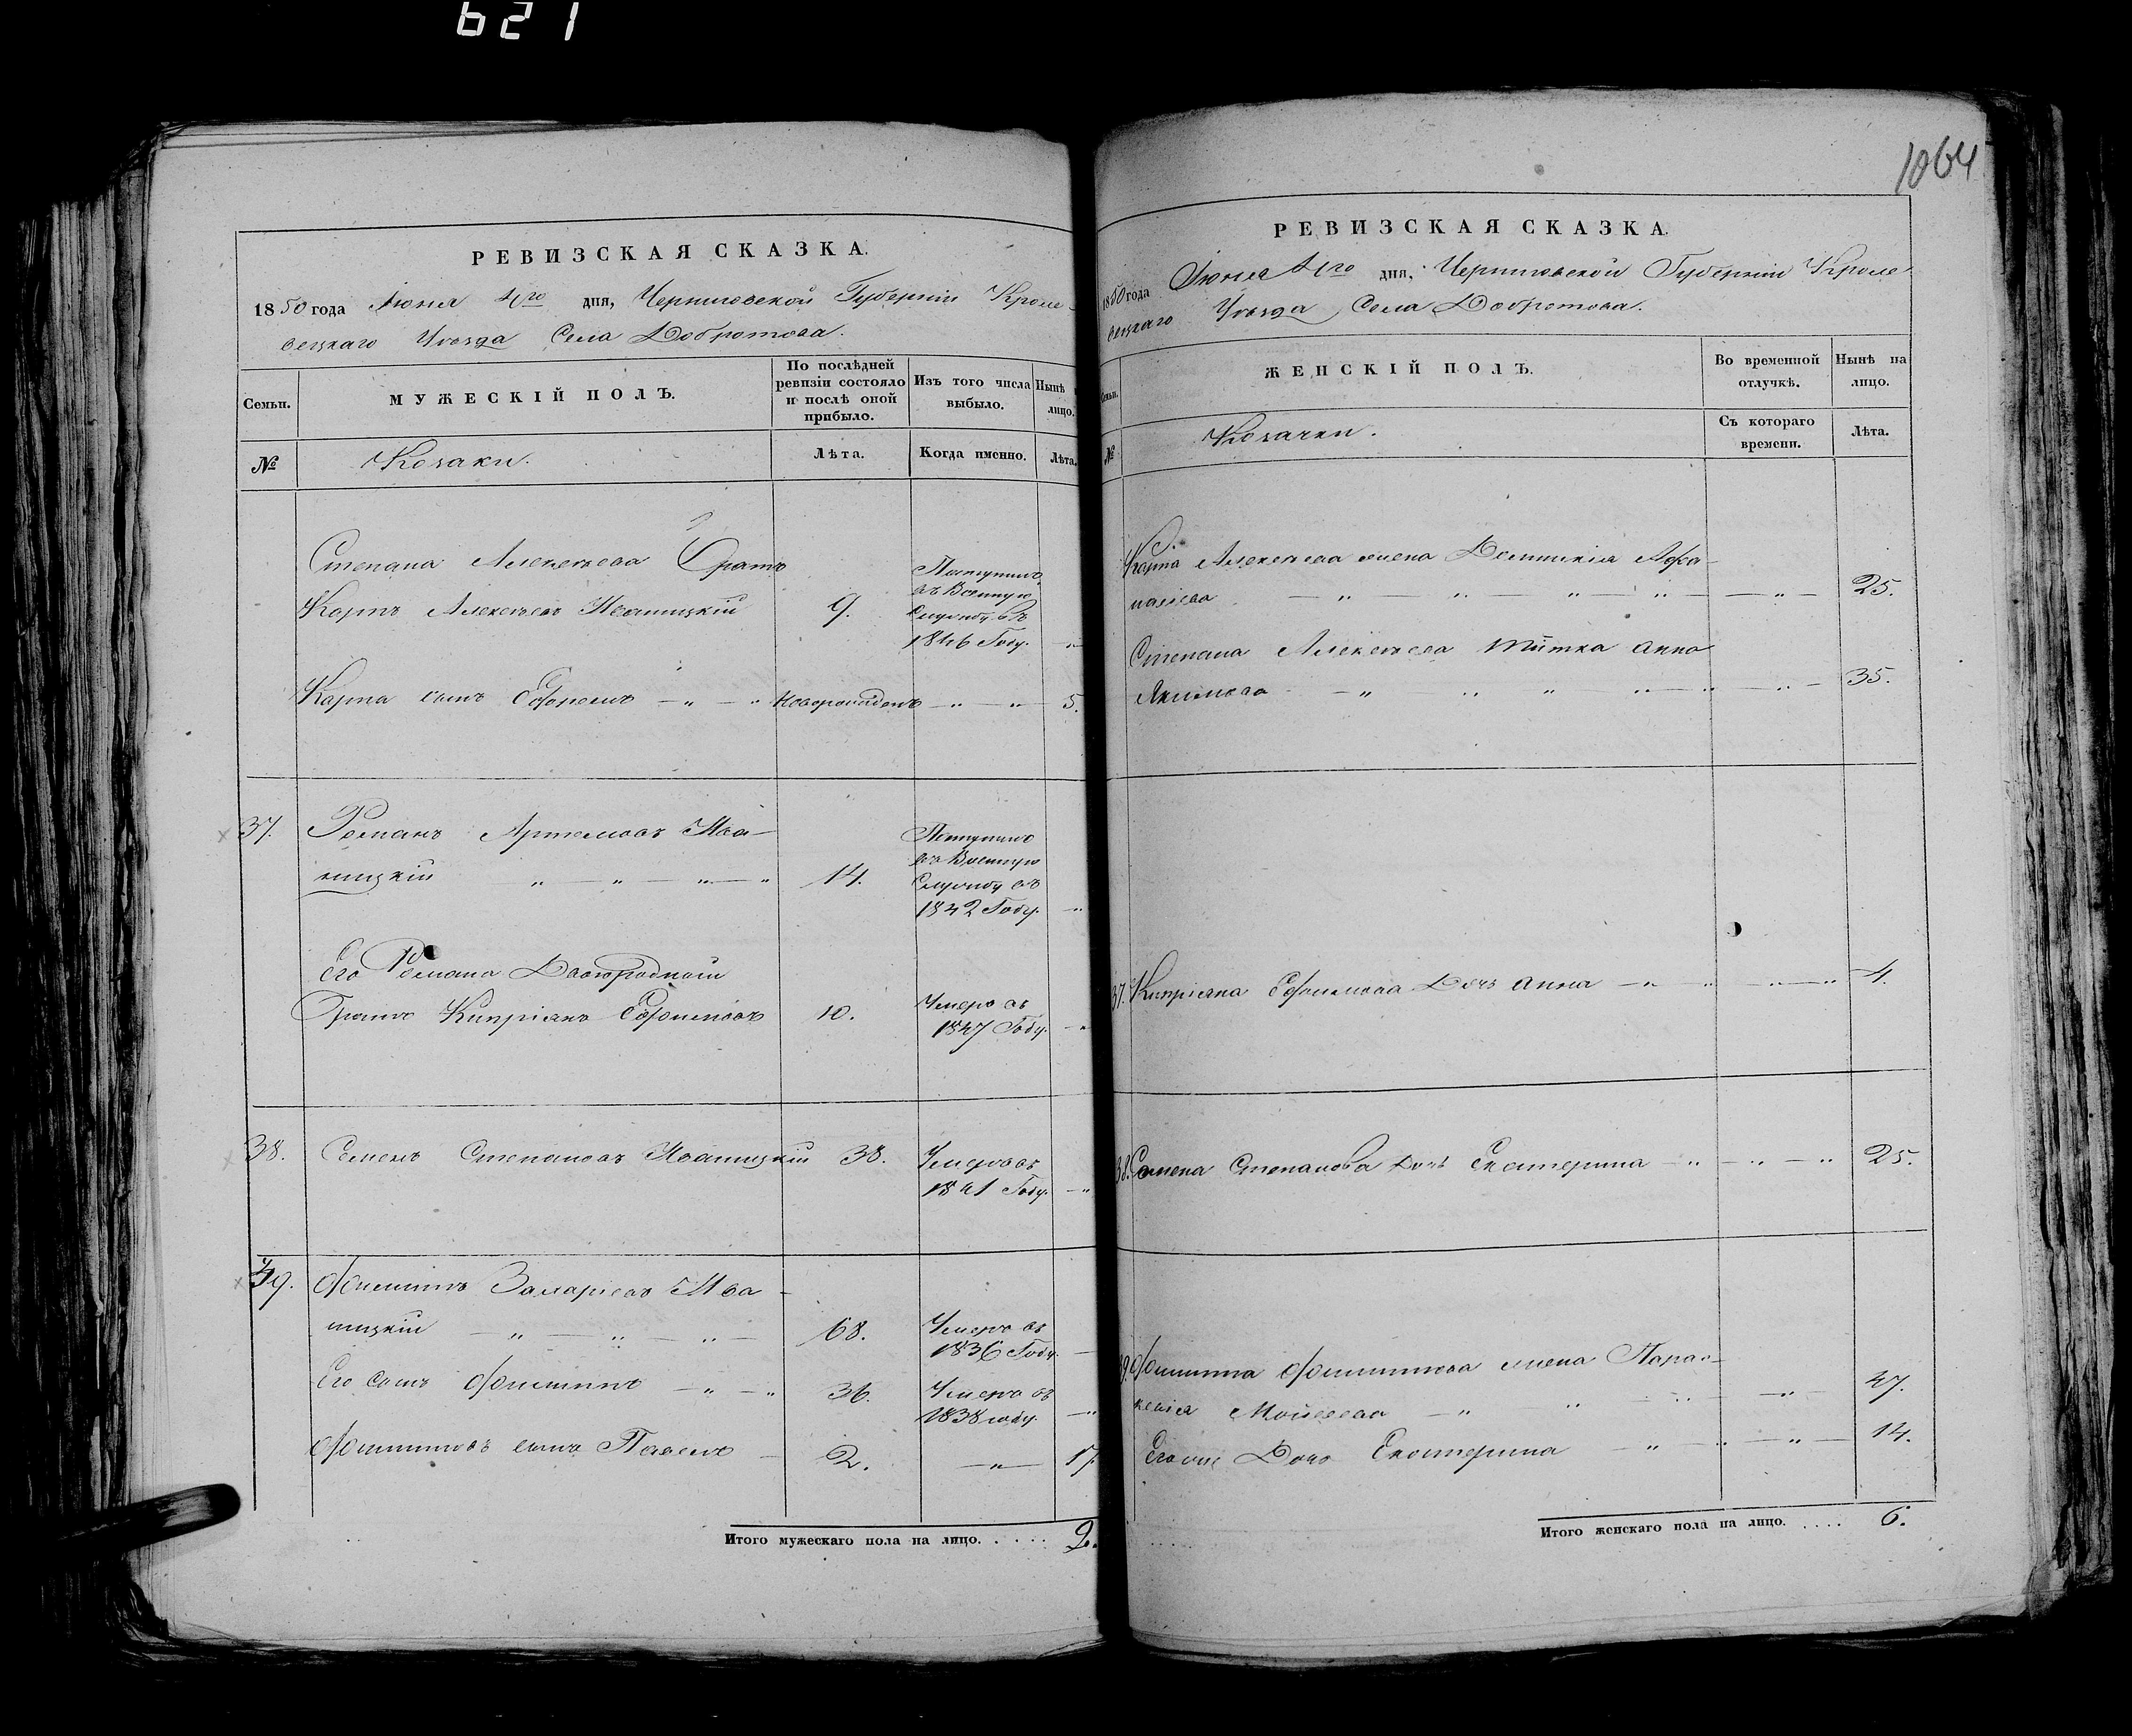 621
1064
РЕВИЗСКАЯ СКАЗКА.
1850 года Июня 4го дня, Черниговской Губернiи Кроле-
вецкаго Уезда Села Добротова.
Семьи.
МУЖЕСКIЙ ПОЛЪ.
По послѣдней
ревизiи состояло
и послѣ оной
прибыло.
Изъ того числа
выбыло.
Нынѣ
лицо.
№
Козаки.
Лѣта.
Когда именно.
Лѣта.
Степана Алексѣева братъ
Карпъ Алексѣевъ Иваницкiй 9.
Поступилъ
въ Военную
Службу въ
1846 Году.
Карпа сынъ Ефремъ новорожденъ 5.
37. Романъ Артемовъ Ива-
ницкiй 14.
Поступилъ
въ Военную
Службу въ
1842 Году.
Его Романа Двоюродный
Братъ Кипрiянъ Ефимовъ 10.
Умеръ въ
1847 Году.
38. Семенъ Степановъ Иваницкiй 38.
Умеръ въ
1841 Году.
39. Филиппъ Захарiевъ Ива-
ницкiй 68.
Умеръ въ
1836 Году.
Его сынъ Филиппъ 36.
Умеръ въ
1838 году.
Филиповъ сынъ Павелъ 2. 17
Итого мужескаго пола на лицо. . . . . 2.
РЕВИЗСКАЯ СКАЗКА.
1850 года Июня 4го дня, Черниговской Губернiи Кроле-
вецкаго Уезда Села Добротова.
Семьи.
ЖЕНСКIЙ ПОЛЪ.
Во временной
отлучкѣ.
Нынѣ на
лицо.
№
Козачки.
Съ котораго
времени.
Лѣта.
Карпа Алексѣева жена Домникiя Афа-
насiева 25.
Степана Алексѣева тiотка Анна
Якимова 35.
37. Кипрiяна Ефимова Дочь Анна 4.
38. Семена Степанова дочь Екатерина 25.
39. Филиппа Филиппова жена Парас-
кевiя Мойсеева 47.
Его же Дочь Екатерина 14.
Итого женскаго пола на лицо. . . . . 6.